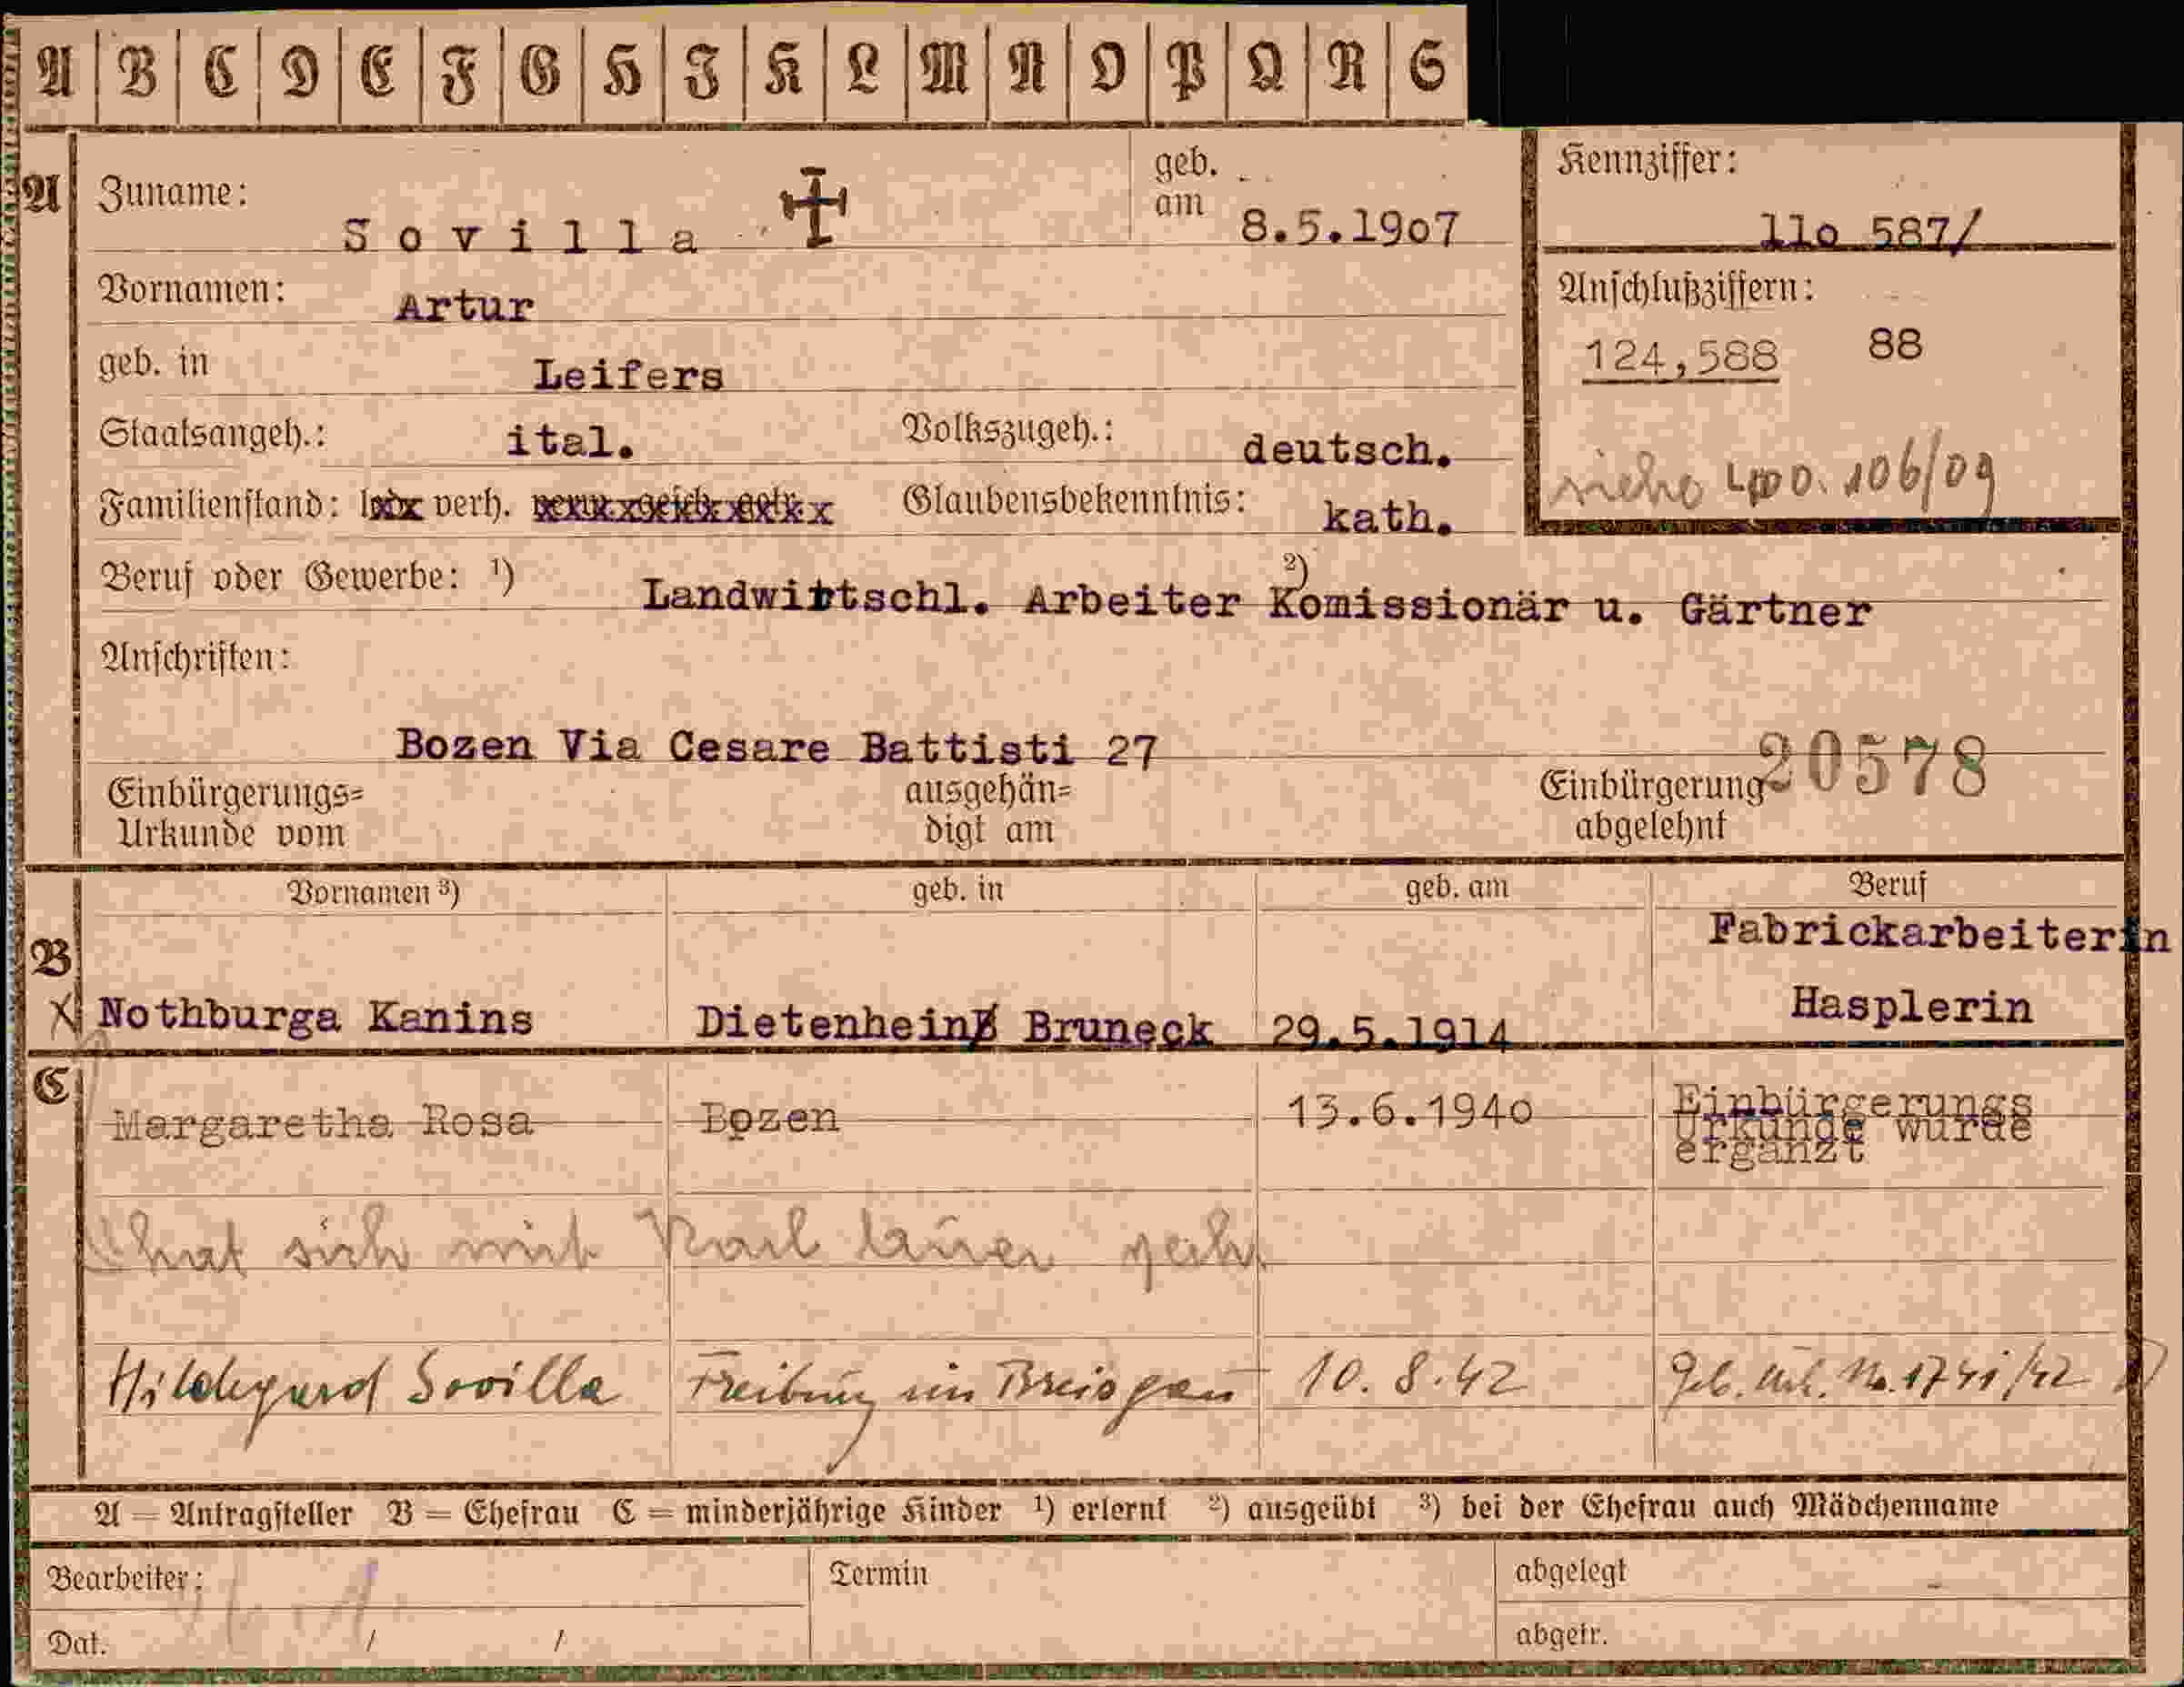 A B C D E F G H J K L M N O P Q R S
A Zuname: Sovilla
geb. am 8.5.1907
Kennziffer: 11o 587/
Vornamen: Artur
Anschlußziffern:
124,588 88
geb. in Leifers
Staatsangeh.: ital. Volkszugeh.: deutsch.
siehe 400.106/09
Familienstand: verh. Glaubensbekenntnis: kath.
Beruf oder Gewerbe: 1) Landwirtschl. Arbeiter 2) Komissionär u. Gärtner
Anschriften:
Bozen Via Cesare Battisti 27
20578
Einbürgerungs= Urkunde vom
ausgehän= digt am
Einbürgerung abgelehnt
Vornamen 3) geb. in geb. am Beruf
B
Fabrickarbeiterin
x Nothburga Kanins Dietenhein Bruneck 29.5.1914 Hasplerin
C
Margaretha Rosa Bozen 13.6.1940 Einbürgerungs
Urkunde wurde
ergänzt
hat sich mit Karl
Hildegard Sovilla Freiburg im Breisgau 10.8.42 Geb. Urk. No. 1741/42
A = Antragsteller B = Ehefrau C = minderjährige Kinder 1) erlernt 2) ausgeübt 3) bei der Ehefrau auch Mädchenname
Bearbeiter: Termin abgelegt
Dat. / / abgetr.